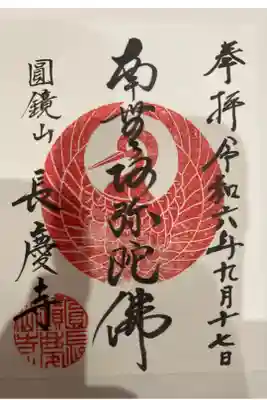 奉拝令和六年九月十七日
南無阿弥陀佛
圓鏡山
長慶寺